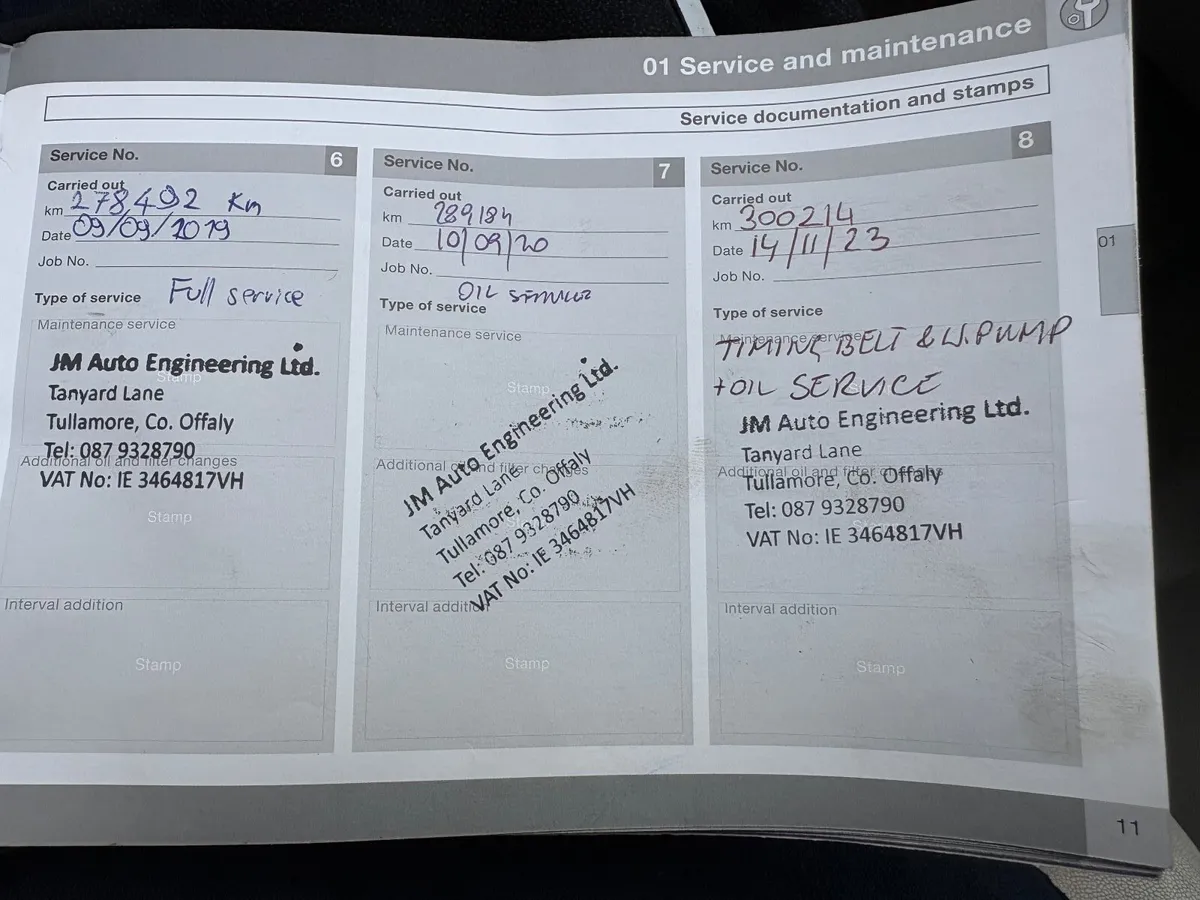 01 Service and maintenance
Service documentation and stamps
Service No. 6
Carried out
km 278,492 Km
Date 09/09/2019
Job No.
Type of service Full service
Maintenance service
Stamp
JM Auto Engineering Ltd.
Tanyard Lane
Tullamore, Co. Offaly
Tel: 087 9328790
Additional oil and filter changes
VAT No: IE 3464817VH
Stamp
Interval addition
Stamp
Service No. 7
Carried out
km 289184
Date 10/09/20
Job No.
OIL SERVICE
Type of service
Maintenance service
Stamp
JM Auto Engineering Ltd.
Tanyard Lane
Tullamore, Co. Offaly
Tel: 087 9328790
VAT No: IE 3464817VH
Additional oil and filter changes
Interval addition
Stamp
Service No. 8
Carried out
km 300214
Date 14/11/23
Job No.
Type of service
Maintenance service
TIMING BELT & W.PUMP
+ OIL SERVICE
JM Auto Engineering Ltd.
Tanyard Lane
Additional oil and filter changes
Tullamore, Co. Offaly
Tel: 087 9328790
VAT No: IE 3464817VH
Interval addition
Stamp
01
11